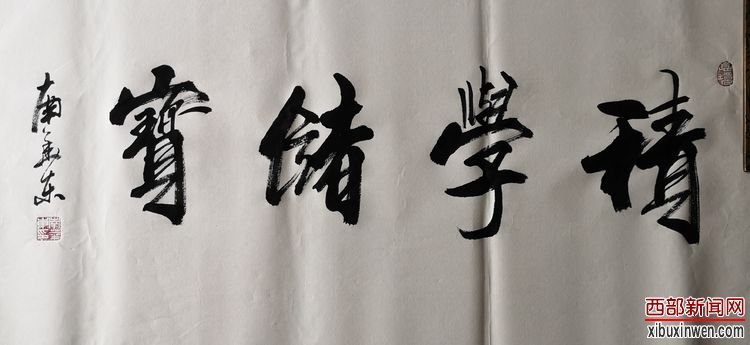 積學儲寶
南
西部新闻网
xibuxinwen.com